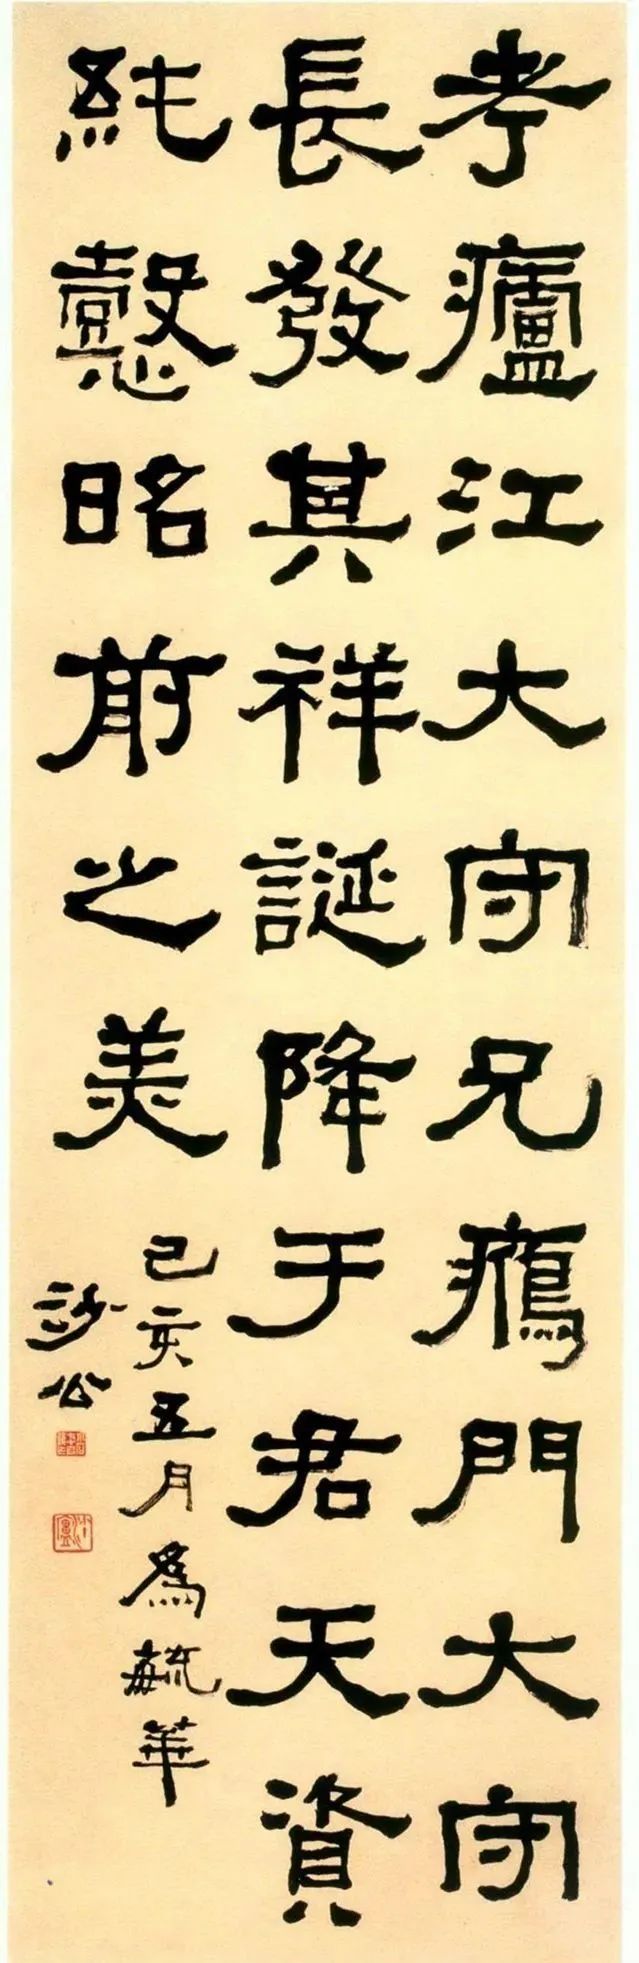 考廬江大守兄鴈門大守
長發其祥誕降于君天資
純慤昭前之美
己亥五月為毓華
沙公